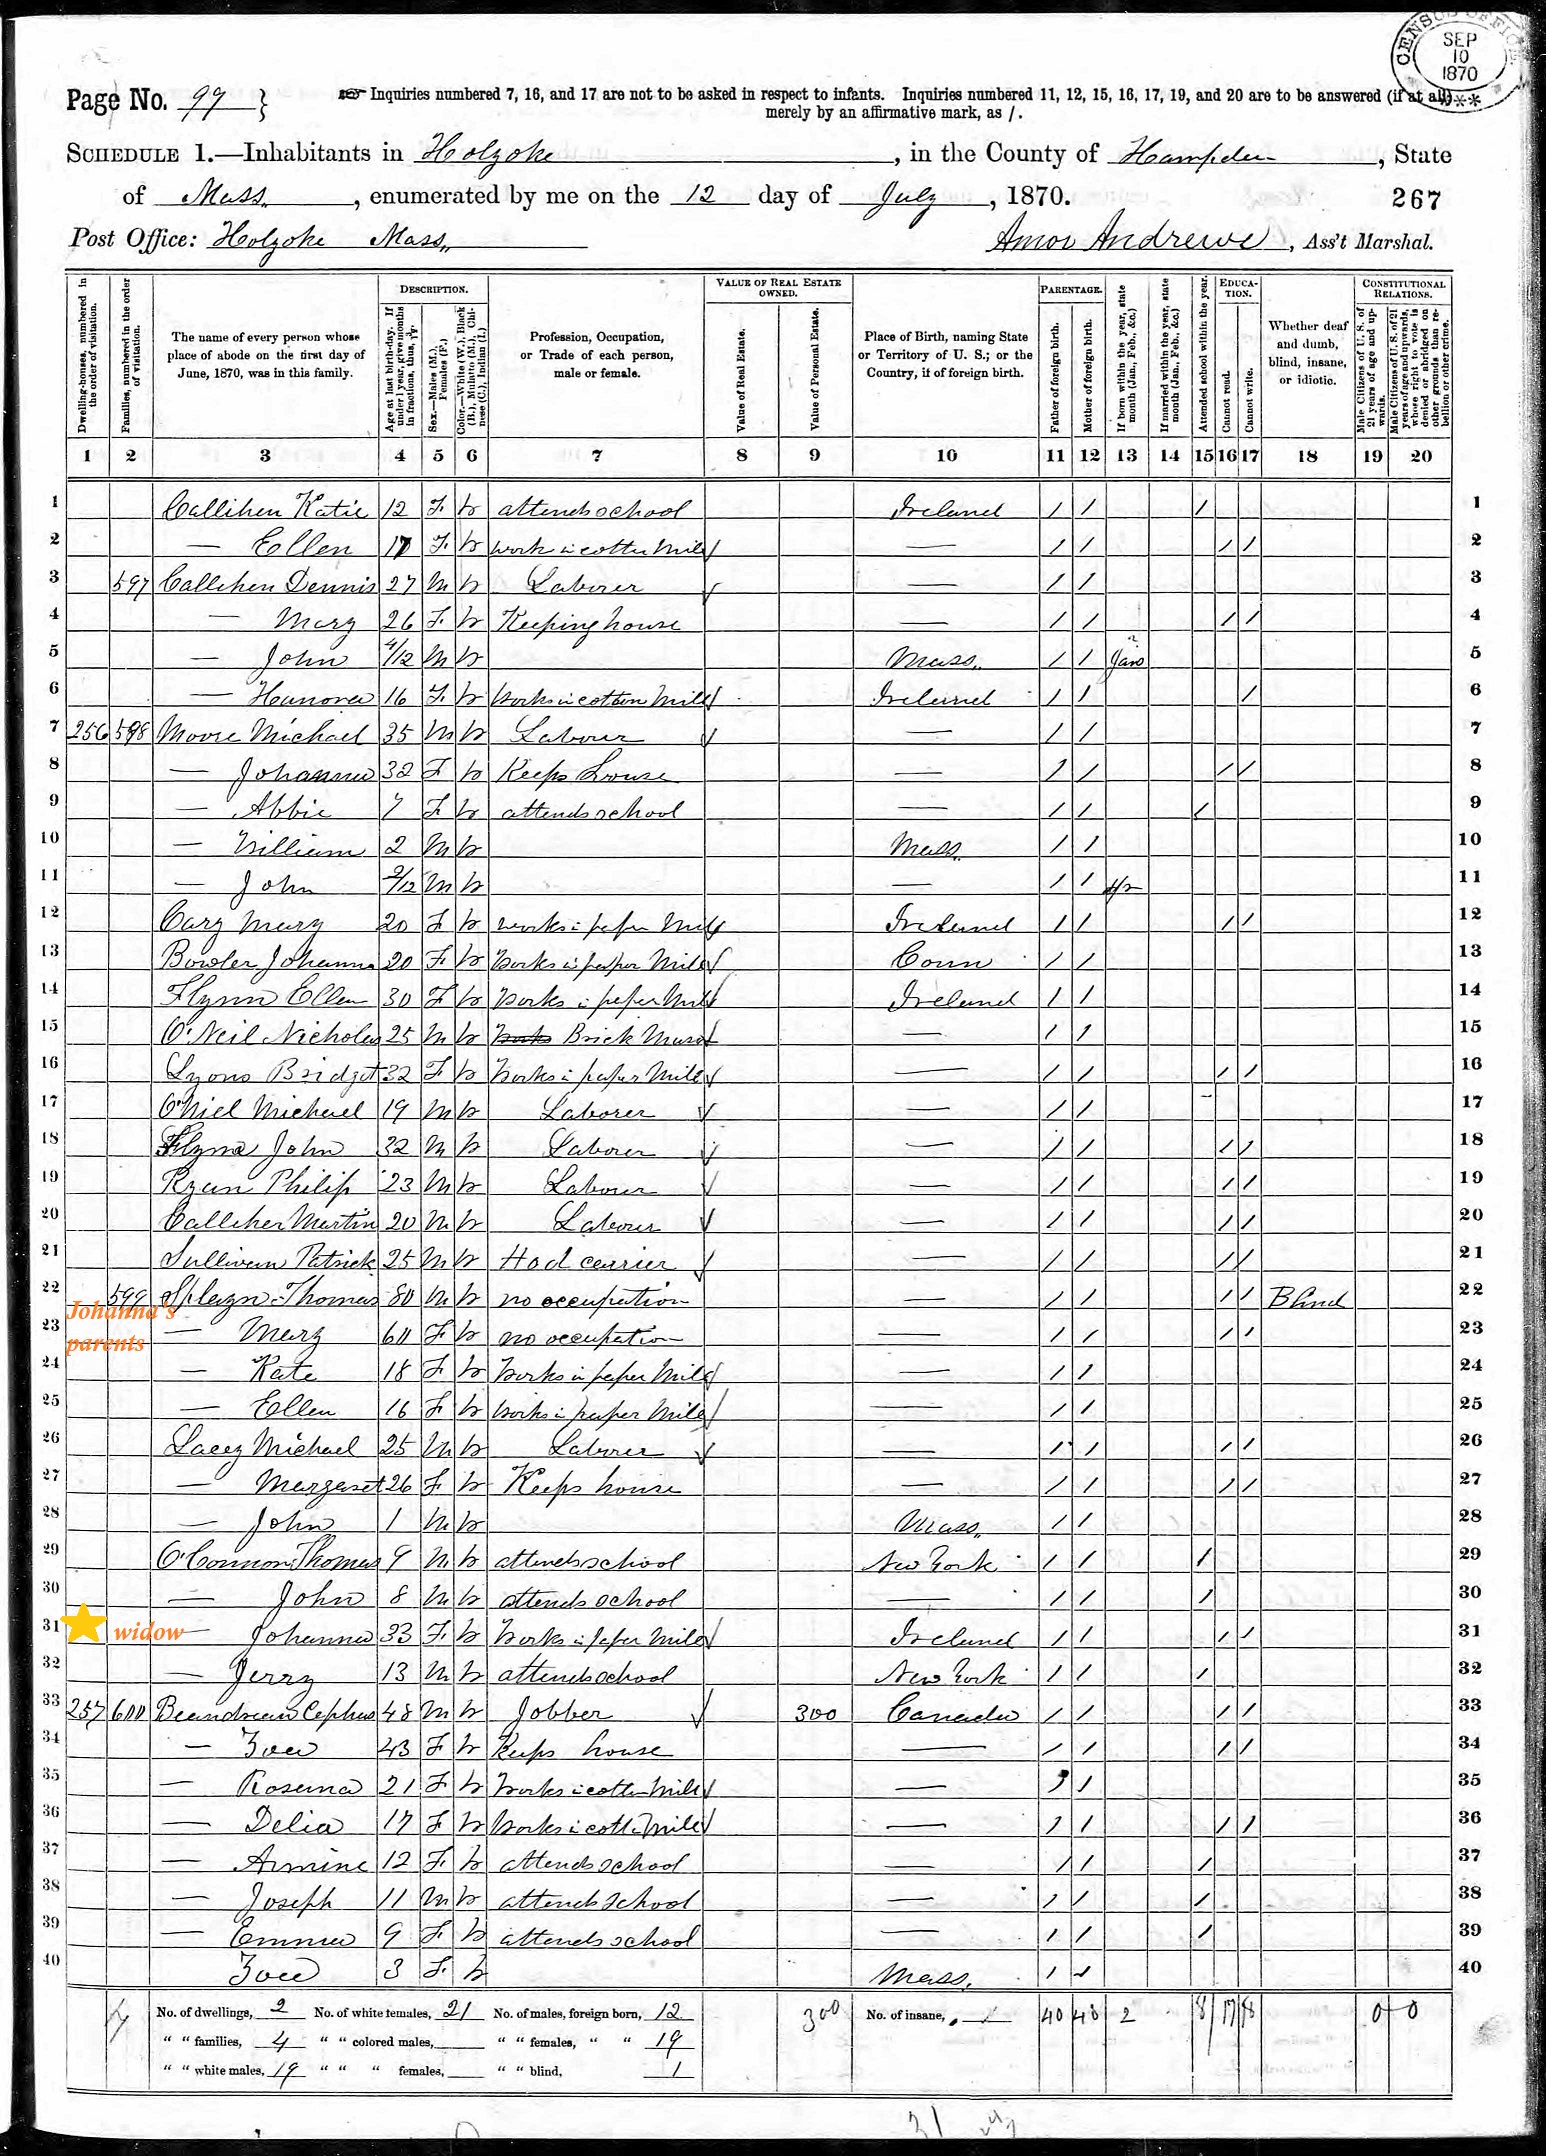 CENSUS OFFICE SEP 10 1870 ***
Page No. 99 }
Inquiries numbered 7, 16, and 17 are not to be asked in respect to infants. Inquiries numbered 11, 12, 15, 16, 17, 19, and 20 are to be answered (if at all)
merely by an affirmative mark, as /.
SCHEDULE 1.—Inhabitants in Holyoke, in the County of Hampden, State
of Mass., enumerated by me on the 12 day of July, 1870. 267
Post Office: Holyoke Mass, Amos Andrews, Ass't Marshal.
Dwelling-houses, numbered in the order of visitation.
Families, numbered in the order of visitation.
The name of every person whose place of abode on the first day of June, 1870, was in this family.
DESCRIPTION.
Age at last birth-day. If under 1 year, give months in fractions, thus, 3/12.
Sex.—Males (M.), Females (F.)
Color.—White (W.), Black (B.), Mulatto (M.), Chinese (C.), Indian (I.)
Profession, Occupation, or Trade of each person, male or female.
VALUE OF REAL ESTATE OWNED.
Value of Real Estate.
Value of Personal Estate.
Place of Birth, naming State or Territory of U. S.; or the Country, if of foreign birth.
PARENTAGE.
Father of foreign birth.
Mother of foreign birth.
If born within the year, state month (Jan., Feb., &c.)
If married within the year, state month (Jan., Feb., &c.)
Attended school within the year.
EDUCATION.
Cannot read.
Cannot write.
Whether deaf and dumb, blind, insane, or idiotic.
CONSTITUTIONAL RELATIONS.
Male Citizens of U. S. of 21 years of age and upwards.
Male Citizens of U. S. of 21 years of age and upwards, whose right to vote is denied or abridged on other grounds than rebellion or other crime.
1 2 3 4 5 6 7 8 9 10 11 12 13 14 15 16 17 18 19 20
1 Callihen Katie 12 F. W attends school Ireland / / / 1
2 — Ellen 17 F. W work in cotton Mill — / / / / 2
3 597 Callihen Dennis 27 M W Laborer — / / 3
4 — Mary 26 F. W Keeping house — / / / / 4
5 — John 4/12 M W Mass. / / Jan 5
6 — Hanora 16 F. W Works in cotton Mill Ireland / / / 6
7 256 598 Moore Michael 35 M W Laborer — / / 7
8 — Johanna 32 F W Keeps house — / / / / 8
9 — Abbie 7 F. W attends school — / / / 9
10 — William 2 M W Mass. / / 10
11 — John 2/12 M W — / / 11
12 Cary Mary 20 F W works in paper Mill Ireland / / / / 12
13 Bowler Johanna 20 F. W Works in paper Mill Conn / / 13
14 Flynn Ellen 30 F W Works in paper Mill Ireland / / 14
15 O'Neil Nicholas 25 M W Works Brick Mason — / / 15
16 Lyons Bridget 32 F W Works in paper Mill — / / / / 16
17 O'Niel Michael 19 M W Laborer — / / 17
18 Flynn John 32 M W Laborer — / / / / 18
19 Ryan Philip 23 M W Laborer — / / / / 19
20 Calliher Martin 20 M W Laborer — / / / / 20
21 Sullivan Patrick 25 M W Hod carrier — / / / / 21
22 599 Splayn Thomas 80 M W no occupation — / / / / Blind 22
Johanna's parents
23 — Mary 60 F. W no occupation — / / / / 23
24 — Kate 18 F W Works in paper Mill — / / 24
25 — Ellen 16 F W Works in paper Mill — / / 25
26 Lacey Michael 25 M W Laborer — / / / / 26
27 — Margaret 26 F. W Keeps house — / / / / 27
28 — John 1 M W Mass. / / 28
29 O'Connor Thomas 9 M W attends school New York / / / 29
30 — John 8 M W attends school — / / / 30
31 widow — Johanna 33 F. W Works in paper Mill Ireland / / / / 31
32 — Jerry 13 M W attends school New York / / / 32
33 257 600 Beaudreau Cephus 48 M W Jobber 300 Canada / / / / 33
34 — Zoe 43 F. W Keeps house — / / / / 34
35 — Rosanna 21 F W Works in cotton Mill — / / 35
36 — Delia 17 F W Works in cotton Mill — / / / / 36
37 — Armine 12 F. W attends school — / / / 37
38 — Joseph 11 M W attends school — / / / 38
39 — Emma 9 F. W attends school — / / / 39
40 Zoe 3 F. W Mass. / / 40
No. of dwellings, 2 No. of white females, 21 No. of males, foreign born, 12 300 No. of insane, 40 40 2 8 17 18 0 0
" " families, 4 " " colored males, " " females, " " 19
" " white males, 19 " " " females, " " blind, 1
31